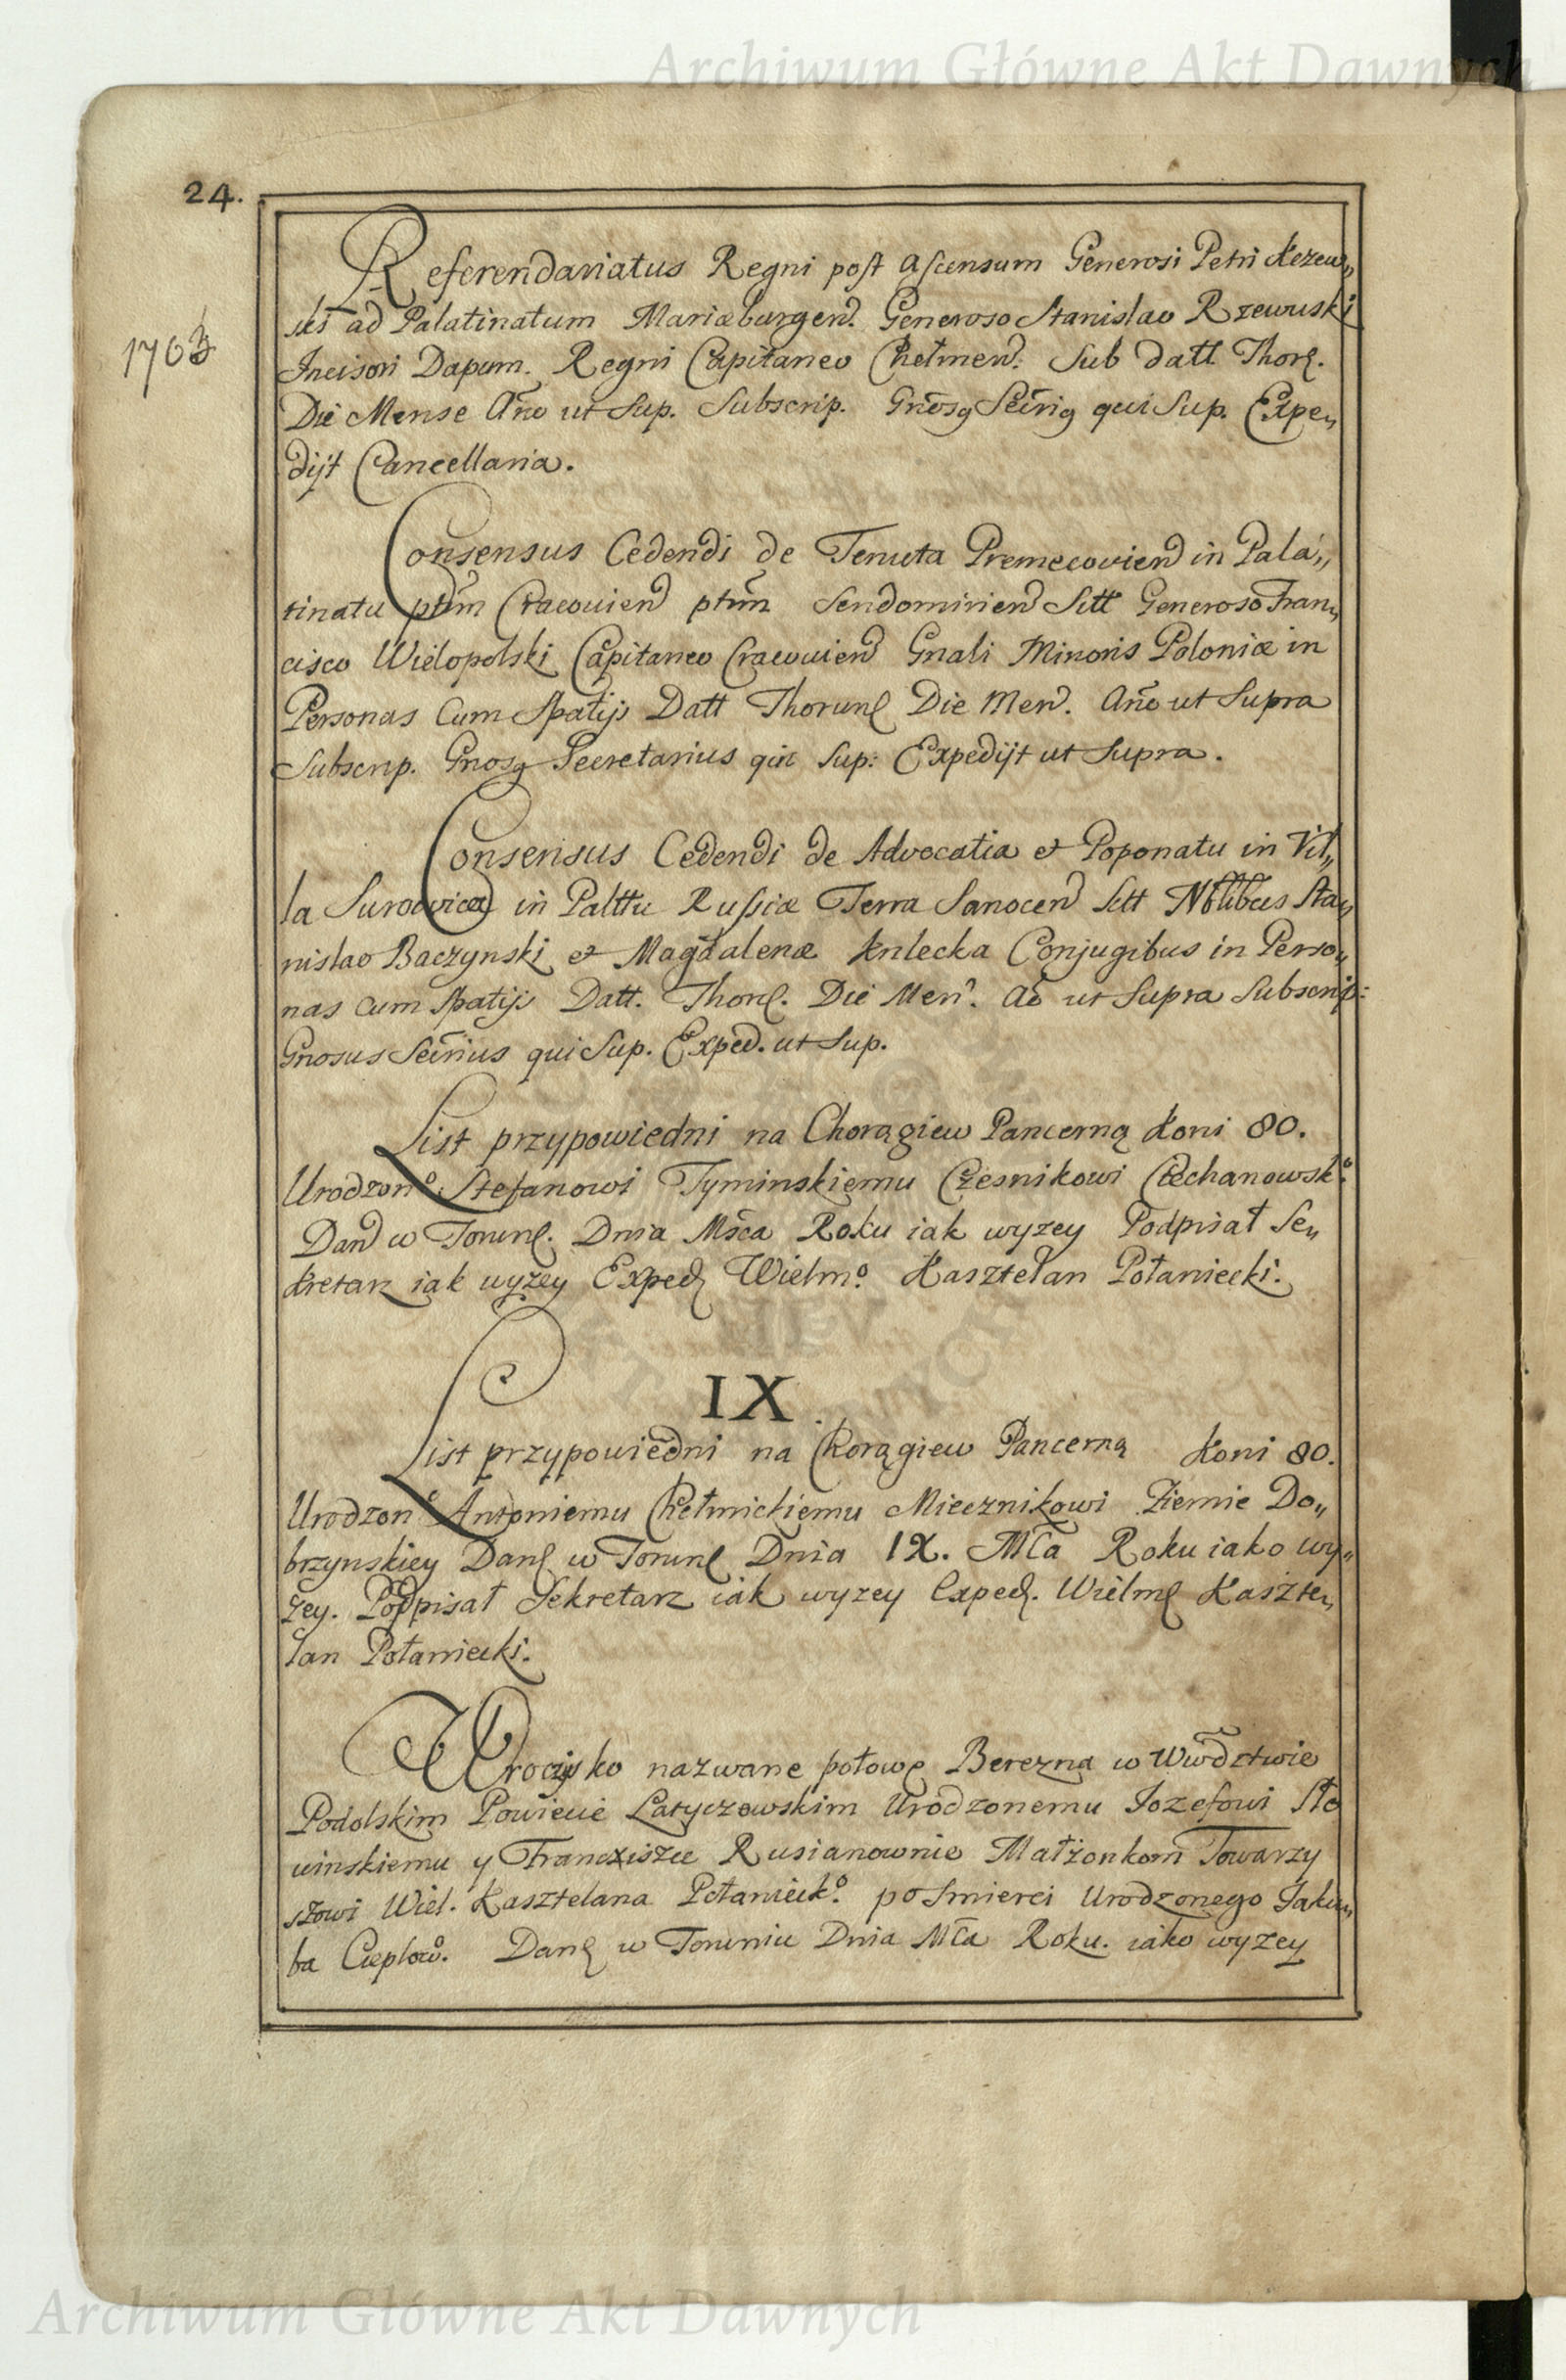 Archiwum Główne Akt Dawnych
24.
Referendariatus Regni post ascensum Generosi Petri Rzewu„
ski ad Palatinatum Mariæburgen. Generoso Stanislao Rzewuski
1703
Incisori Dapum. Regni Capitaneo Chełmen: Sub datt Thorֽ.
Die Mense Año ut Sup. Subscrip. Gnosg Secrig qui Sup. Expe„
dijt Cancellaria.
Consensus Cedendi de Tenuta Premecovien in Pala„
tinatu ptim Cracovien ptim Sendomirien Sitt Generoso Fran„
cisco Wielopolski Capitaneo Cracovien Gnali Minoris Poloniæ in
Personas Cum Spatijs Datt Thorun Die Men. Año ut Supra
Subscrip. Gnosg Secretarius qui Sup: Expedijt ut Supra.
Consensus Cedendi de Advocatia et Poponatu in Vil„
la Surowica in Palttu Russiæ Terra Sanocen Sitt Nblibus Sta„
nislao Baczynski et Magdalenæ Knlecka Conjugibus in Perso„
nas cum Spatijs Datt. Thor. Die Men. Ao ut Supra Subscrip:
Gnosus Secrius qui Sup. Exped. ut Sup.
List przypowiedni na Chorągiew Pancerną Koni 80.
Urodzono: Stefanowi Tyminskiemu Czesnikowi Ciechanowsko:
Dan w Torun. Dnia Msca Roku iak wyzey Podpisał Se„
kretarz iak wyzey Exped Wielmo. Kasztelan Połaniecki.
IX
List przypowiedni na Chorągiew Pancerną Koni 80.
Urodzono Antoniemu Chełmickiemu Miecznikowi Ziemie Do„
brzynskiey Dan w Torun Dnia IX. Mca Roku iako wy„
zey. Podpisał Sekretarz iak wyzey Exped. Wielm Kaszte„
lan Połaniecki.
Uroczysko nazwane połowę Berezna w Wwodztwie
Podolskim Powiecie Latyczowskim Urodzonemu Iozefowi Sło
winskiemu y Franciszce Rusianownie Małżonkom Towarzy
szowi Wiel. Kasztelana Połanieck̊o. po Smierci Urodzonego Jaku„
ba Cieplowo. Dan w Toruniu Dnia Mca Roku. iako wyzey
Archiwum Główne Akt Dawnych